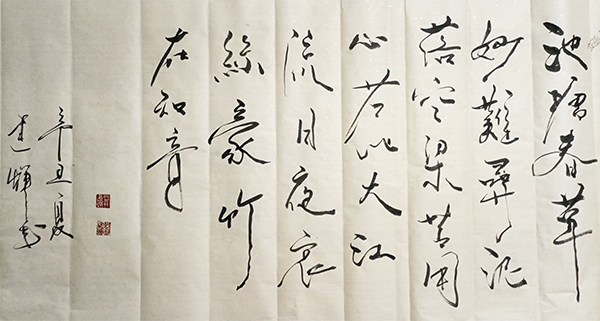 池塘春草
妙難尋泥
落空梁苦用
心若比大江
流日夜哀
絲豪竹
在知音
辛丑夏
建輝书